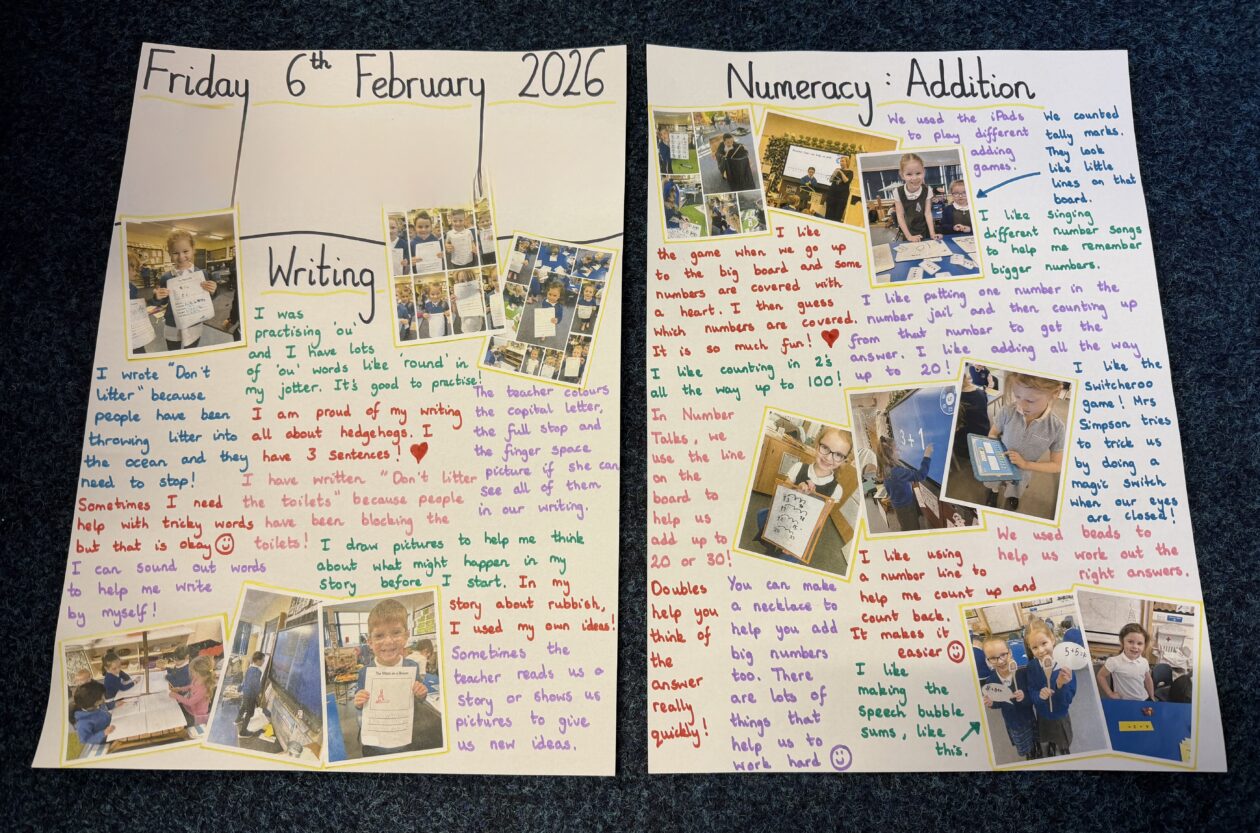 Friday 6th February 2026
Writing
I was
practising 'ou'
and I have lots
of 'ou' words like 'round' in
my jotter. It's good to practise!
I wrote "Don't
litter" because
people have been
throwing litter into
the ocean and they
need to stop!
I am proud of my writing
all about hedgehogs. I
have 3 sentences!
The teacher colours
the capital letter,
the full stop and
the finger space
picture if she can
see all of them
in our writing.
I have written "Don't litter
the toilets" because people
have been blocking the
toilets!
Sometimes I need
help with tricky words
but that is okay
I can sound out words
to help me write
by myself!
I draw pictures to help me think
about what might happen in my
story before I start.
In my
story about rubbish,
I used my own ideas!
Sometimes the
teacher reads us a
story or shows us
pictures to give
us new ideas.
Numeracy : Addition
We used the iPads
to play different
adding
games.
We counted
tally marks.
They look
like little
lines on that
board.
I like singing
different number songs
to help me remember
bigger numbers.
I like
the game when we go up
to the big board and some
numbers are covered with
a heart. I then guess
which numbers are covered.
It is so much fun!
I like putting one number in the
number jail and then counting up
from that number to get the
answer. I like adding all the way
up to 20!
I like counting in 2's
all the way up to 100!
I like the
Switcheroo
game! Mrs
Simpson tries
to trick us
by doing a
magic switch
when our eyes
are closed!
In Number
Talks, we
use the line
on the
board to
help us
add up to
20 or 30!
3+1
We used beads to
help us work out the
right answers.
I like using
a number line to
help me count up and
count back.
It makes it
easier
Doubles
help you
think of
the
answer
really
quickly!
You can make
a necklace to
help you add
big numbers
too. There
are lots of
things that
help us to
work hard
I like
making the
speech bubble
sums, like
this.